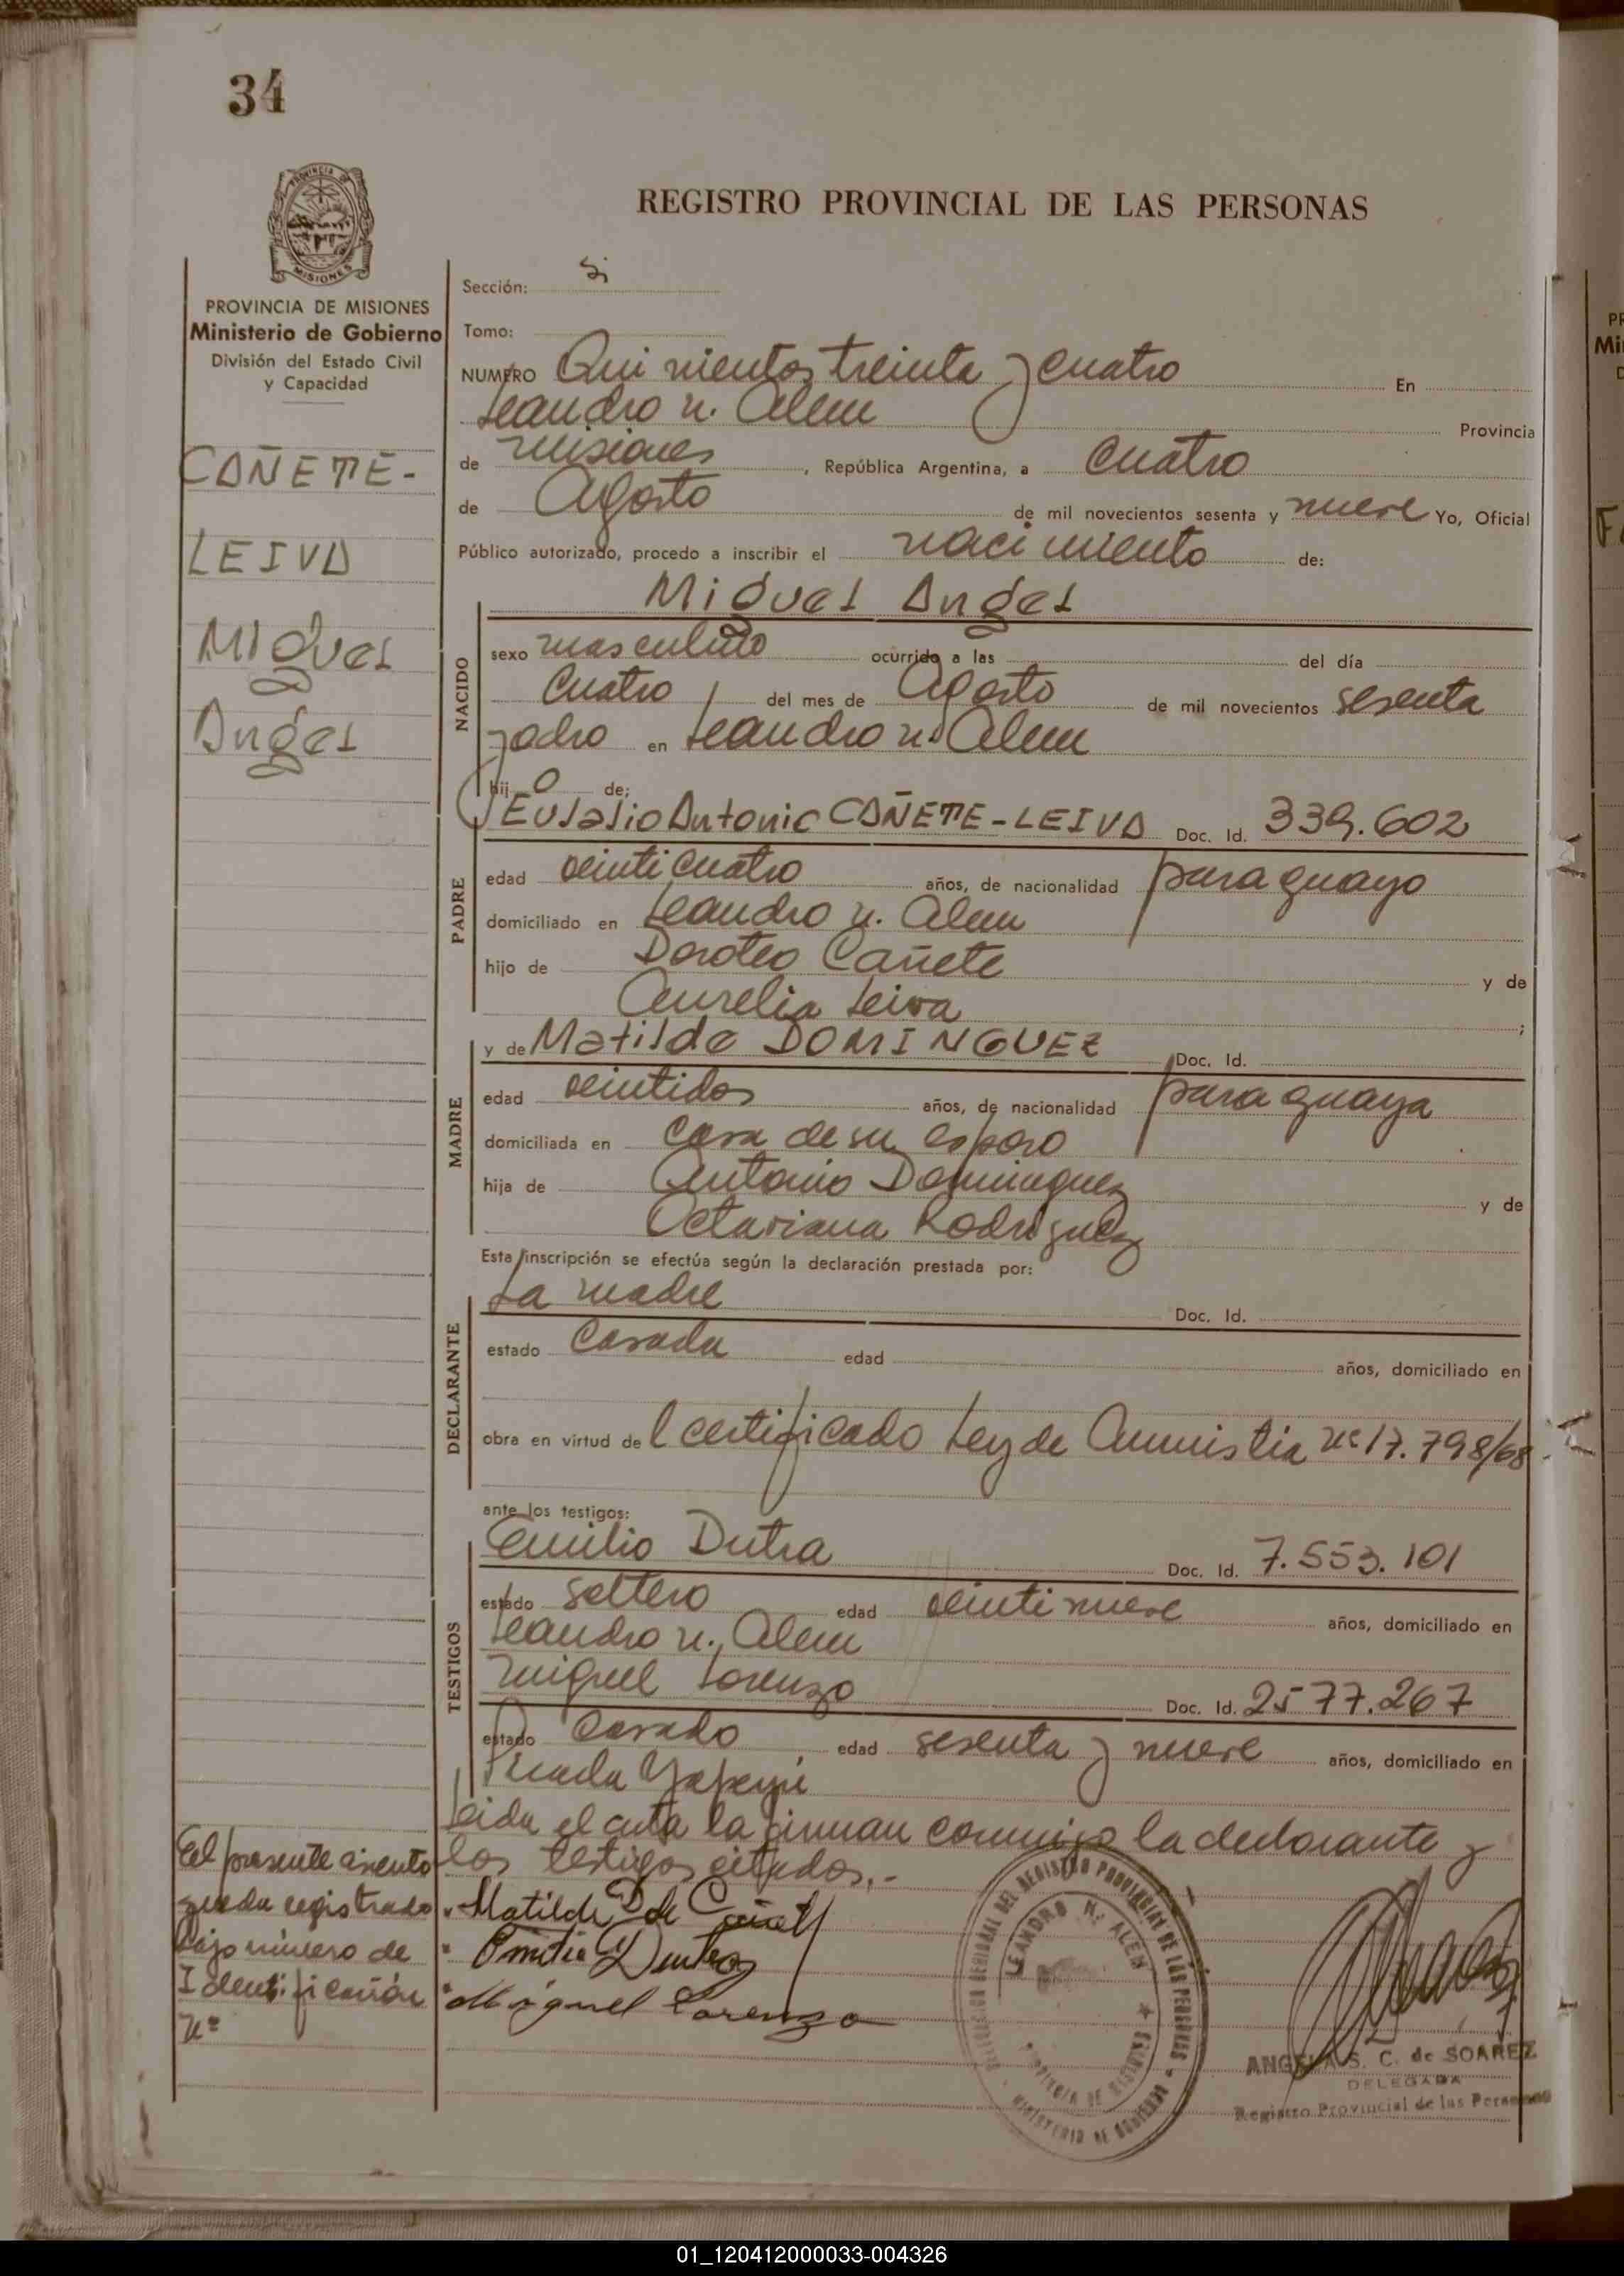 34
PROVINCIA DE
MISIONES
REGISTRO PROVINCIAL DE LAS PERSONAS
PROVINCIA DE MISIONES
Ministerio de Gobierno
División del Estado Civil
y Capacidad
CAÑETE-
LEIVA
Miguel
Angel
Sección:
Tomo:
NUMERO Quinientos treinta y cuatro En
Leandro N. Alem Provincia
de Misiones, República Argentina, a cuatro
de Agosto de mil novecientos sesenta y nueve Yo, Oficial
Público autorizado, procedo a inscribir el nacimiento de:
Miguel Angel
NACIDO
sexo masculino ocurrido a las del día
cuatro del mes de Agosto de mil novecientos sesenta
y ocho en Leandro N. Alem
hijo de:
PADRE
Eulalio Antonio CAÑETE-LEIVA Doc. Id. 339.602
edad veinticuatro años, de nacionalidad paraguayo
domiciliado en Leandro N. Alem
hijo de Doroteo Cañete y de
Aurelia Leiva ;
MADRE
y de Matilde DOMINGUEZ Doc. Id.
edad veintidos años, de nacionalidad paraguaya
domiciliada en casa de su esposo
hija de Antonio Dominguez y de
Octaviana Rodriguez
Esta inscripción se efectúa según la declaración prestada por:
DECLARANTE
La madre Doc. Id.
estado Casada edad años, domiciliado en
obra en virtud del certificado Ley de Amnistia Nº 17.798/68
ante los testigos:
TESTIGOS
Emilio Dutra Doc. Id. 7.553.101
estado soltero edad veintinueve años, domiciliado en
Leandro N. Alem
Miguel Lorenzo Doc. Id. 2577.267
estado Casado edad sesenta y nueve años, domiciliado en
Picada Yapeyú
Leida el acta la firman conmigo la declarante y
los testigos citados.-
El presente asiento
queda registrado
bajo número de
Identificación
Nº
Matilde D de Cañete
Emilio Dutra
Miguel Lorenzo
LEANDRO N. ALEM
DEL REGISTRO PROVINCIAL DE LAS PERSONAS
PROVINCIA DE MISIONES
MINISTERIO DE GOBIERNO
ANGELA S. C. de SOAREZ
DELEGADA
Registro Provincial de las Personas
01_120412000033-004326